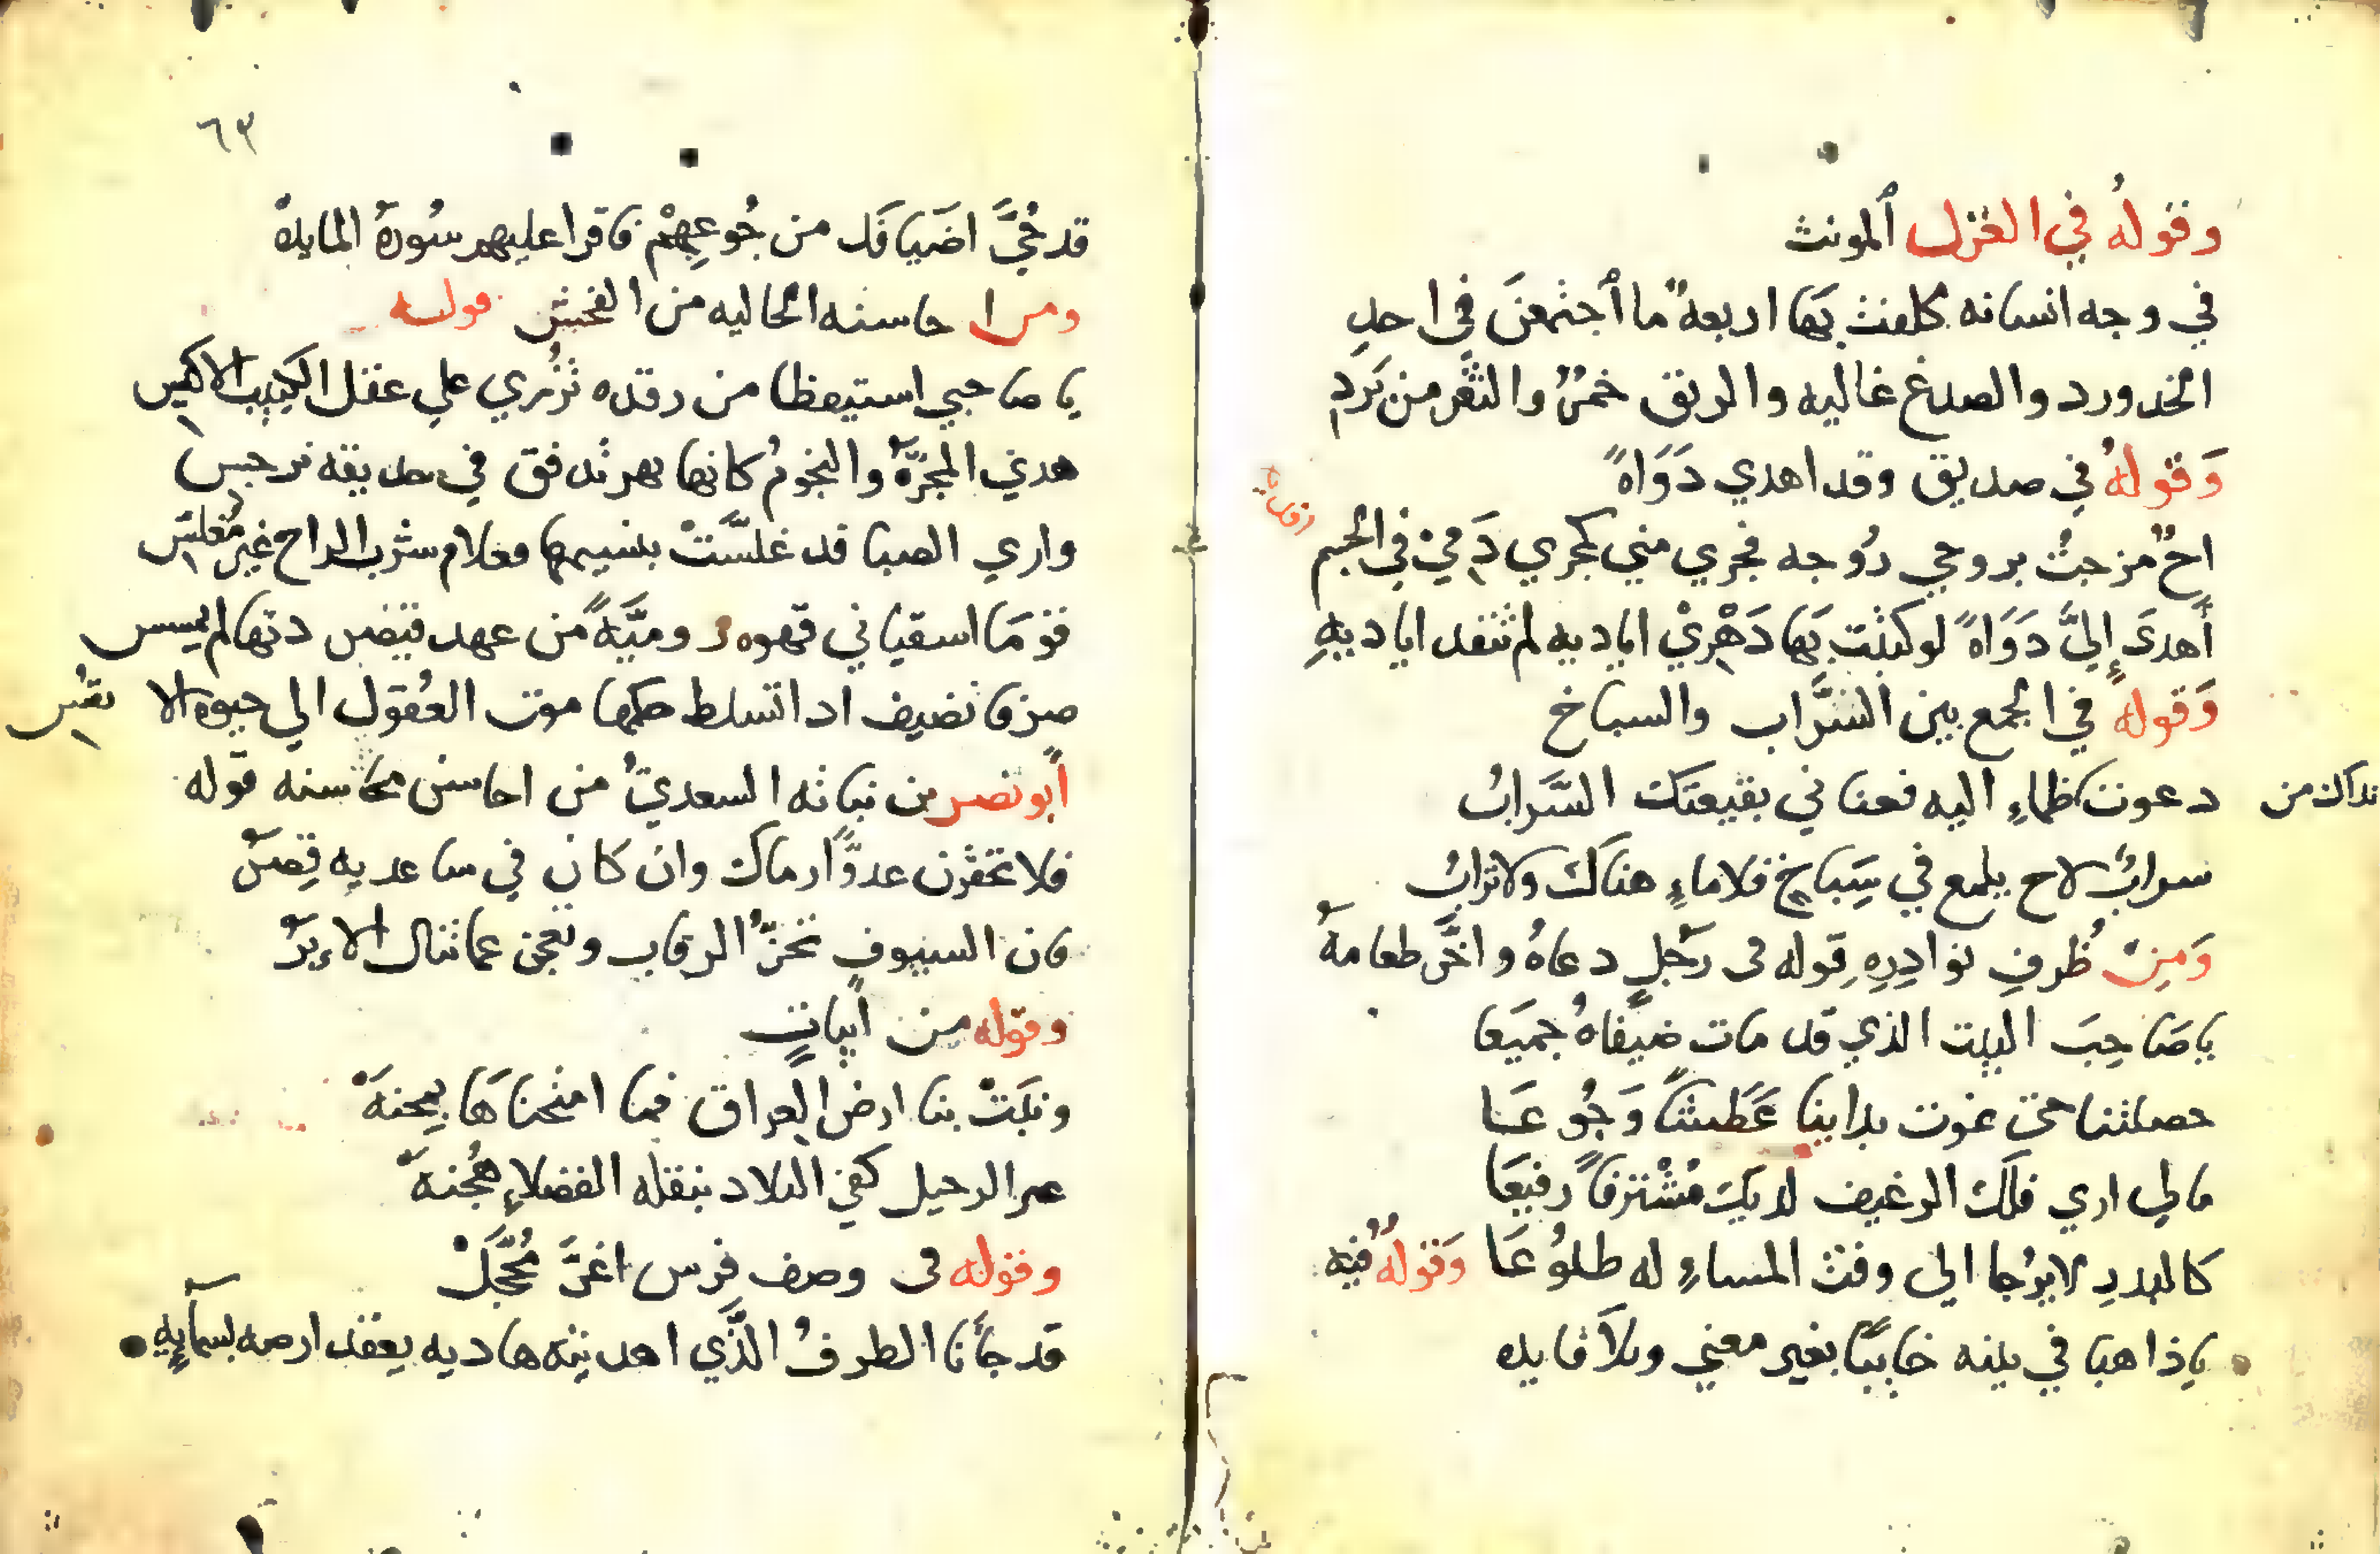 وقوله في الغزل المونث
في وجه انسانه كلفت بها اربعة ما اجتمعن في احد
الخد ورد والصدغ غاليه والريق خمر والثغر من برد
وقوله في صديق وقد اهدي دواة
اخ مزجت بروحي روحه فجري مني كمجري دمي في الجسم
أهدى إليّ دواة لو كتبت بها دهري اياديه لم تنفد اياديه
وقوله في الجمع بين السَّراب والسباخ
دعوت كظماء اليه فعنا في بقيعتك السَّرابُ
نداك من
سرابٌ لاح يلمع في سِباخٍ فلا ماءٍ هناك ولا ترابُ
ومن ظرف نوادره قوله في رجل دعاه واخّر طعامه
يا صاحب البيت الذي قد مات ضيفاهُ جميعا
حصلتنا حتى نموت بداينا عَطشًا وَجُوعَا
مالي اري فلك الرغيف لديك مُشْترفًا رفيعَا
كالبدر لا يرجا الي وقت المساءِ له طلوُعَا وَقولهُ فيه
يا ذاهبا في بيته خايبًا بغير معني وبلا فايده
٦٣
قد جُنَّ اضيافك من جُوعِهِمْ فاقرا عليهم سُورة المايدهْ
ومن احاسنه الخاليه من الفحش قوله
يا صاحبي استيقظا من رقده تُزري علي عقل اللبيب الاكيس
هدي المجرّة والنجومُ كانها نهر تدفق في حديقه نرجس
واري الصبا قد غلسَّتْ بنسيمها فعلام شرب الراح غير مُغلّس
قومَا اسقياني قهوه روميَّةً من عهد قيصر دنها لم يمسس
صرفا تضيف اذا تسلط حكمها موت العُقول الي حيوه الا نفُس
أبو نصر بن نباته السعديّ من احاسن محاسنه قوله
فلا تحقرن عدوًّا رماك وان كان في ساعديه قِصَرْ
فان السيوف تحزُّ الرقاب وتعجز عما تنال الابرْ
وقوله من أبياتٍ
ونبَتْ بنا ارض العراق فما امتحناهَا بمحنهْ
عير الرحيل كفي البلاد بنقله الفضلاءِ هُجنهْ
وقوله في وصف فرس اغرَّ مُحَّجَلْ
قد جأنا الطرفُ الذَّي اهديته هاديه يعقد ارضه بسمآيِهِ